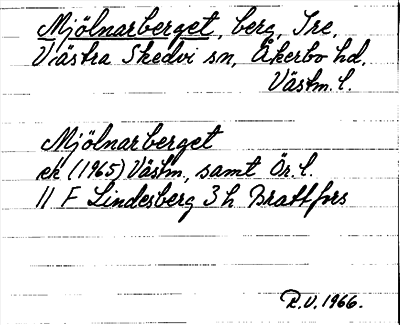 Mjölnarberget, berg, Ire,
Västra Skedvi sn, Åkerbo hd,
Västm. l.
Mjölnarberget
ek (1965) Västm., samt Ör. l.
11 F Lindesberg 3 h Brattfors
R.V. 1966.